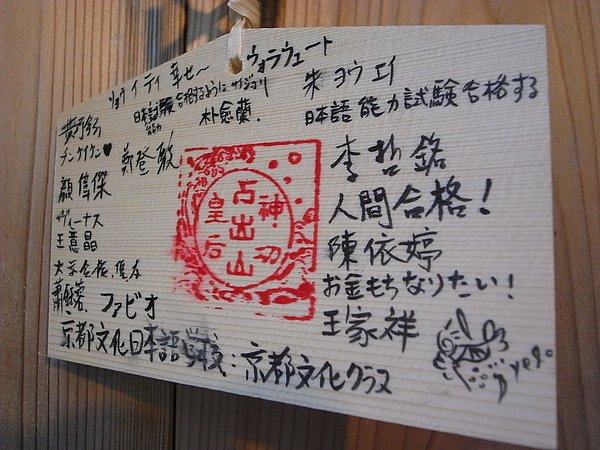 リョウ イ ティ 幸せ～
ヴォラヴュート
日本語
能力
試験 合格するように
朴恵蘭.
朱 ヨウ エイ
日本語 能力試験合格する
チンケイケン♥
鄭登毅
顧雋傑
ヴィーナス
王意晶
ファビオ
李哲銘
人間合格!
陳依婷
お金もちなりたい!
王家祥
京都文化日本語学校:京都文化クラス
占出山
神功
皇后
yeto